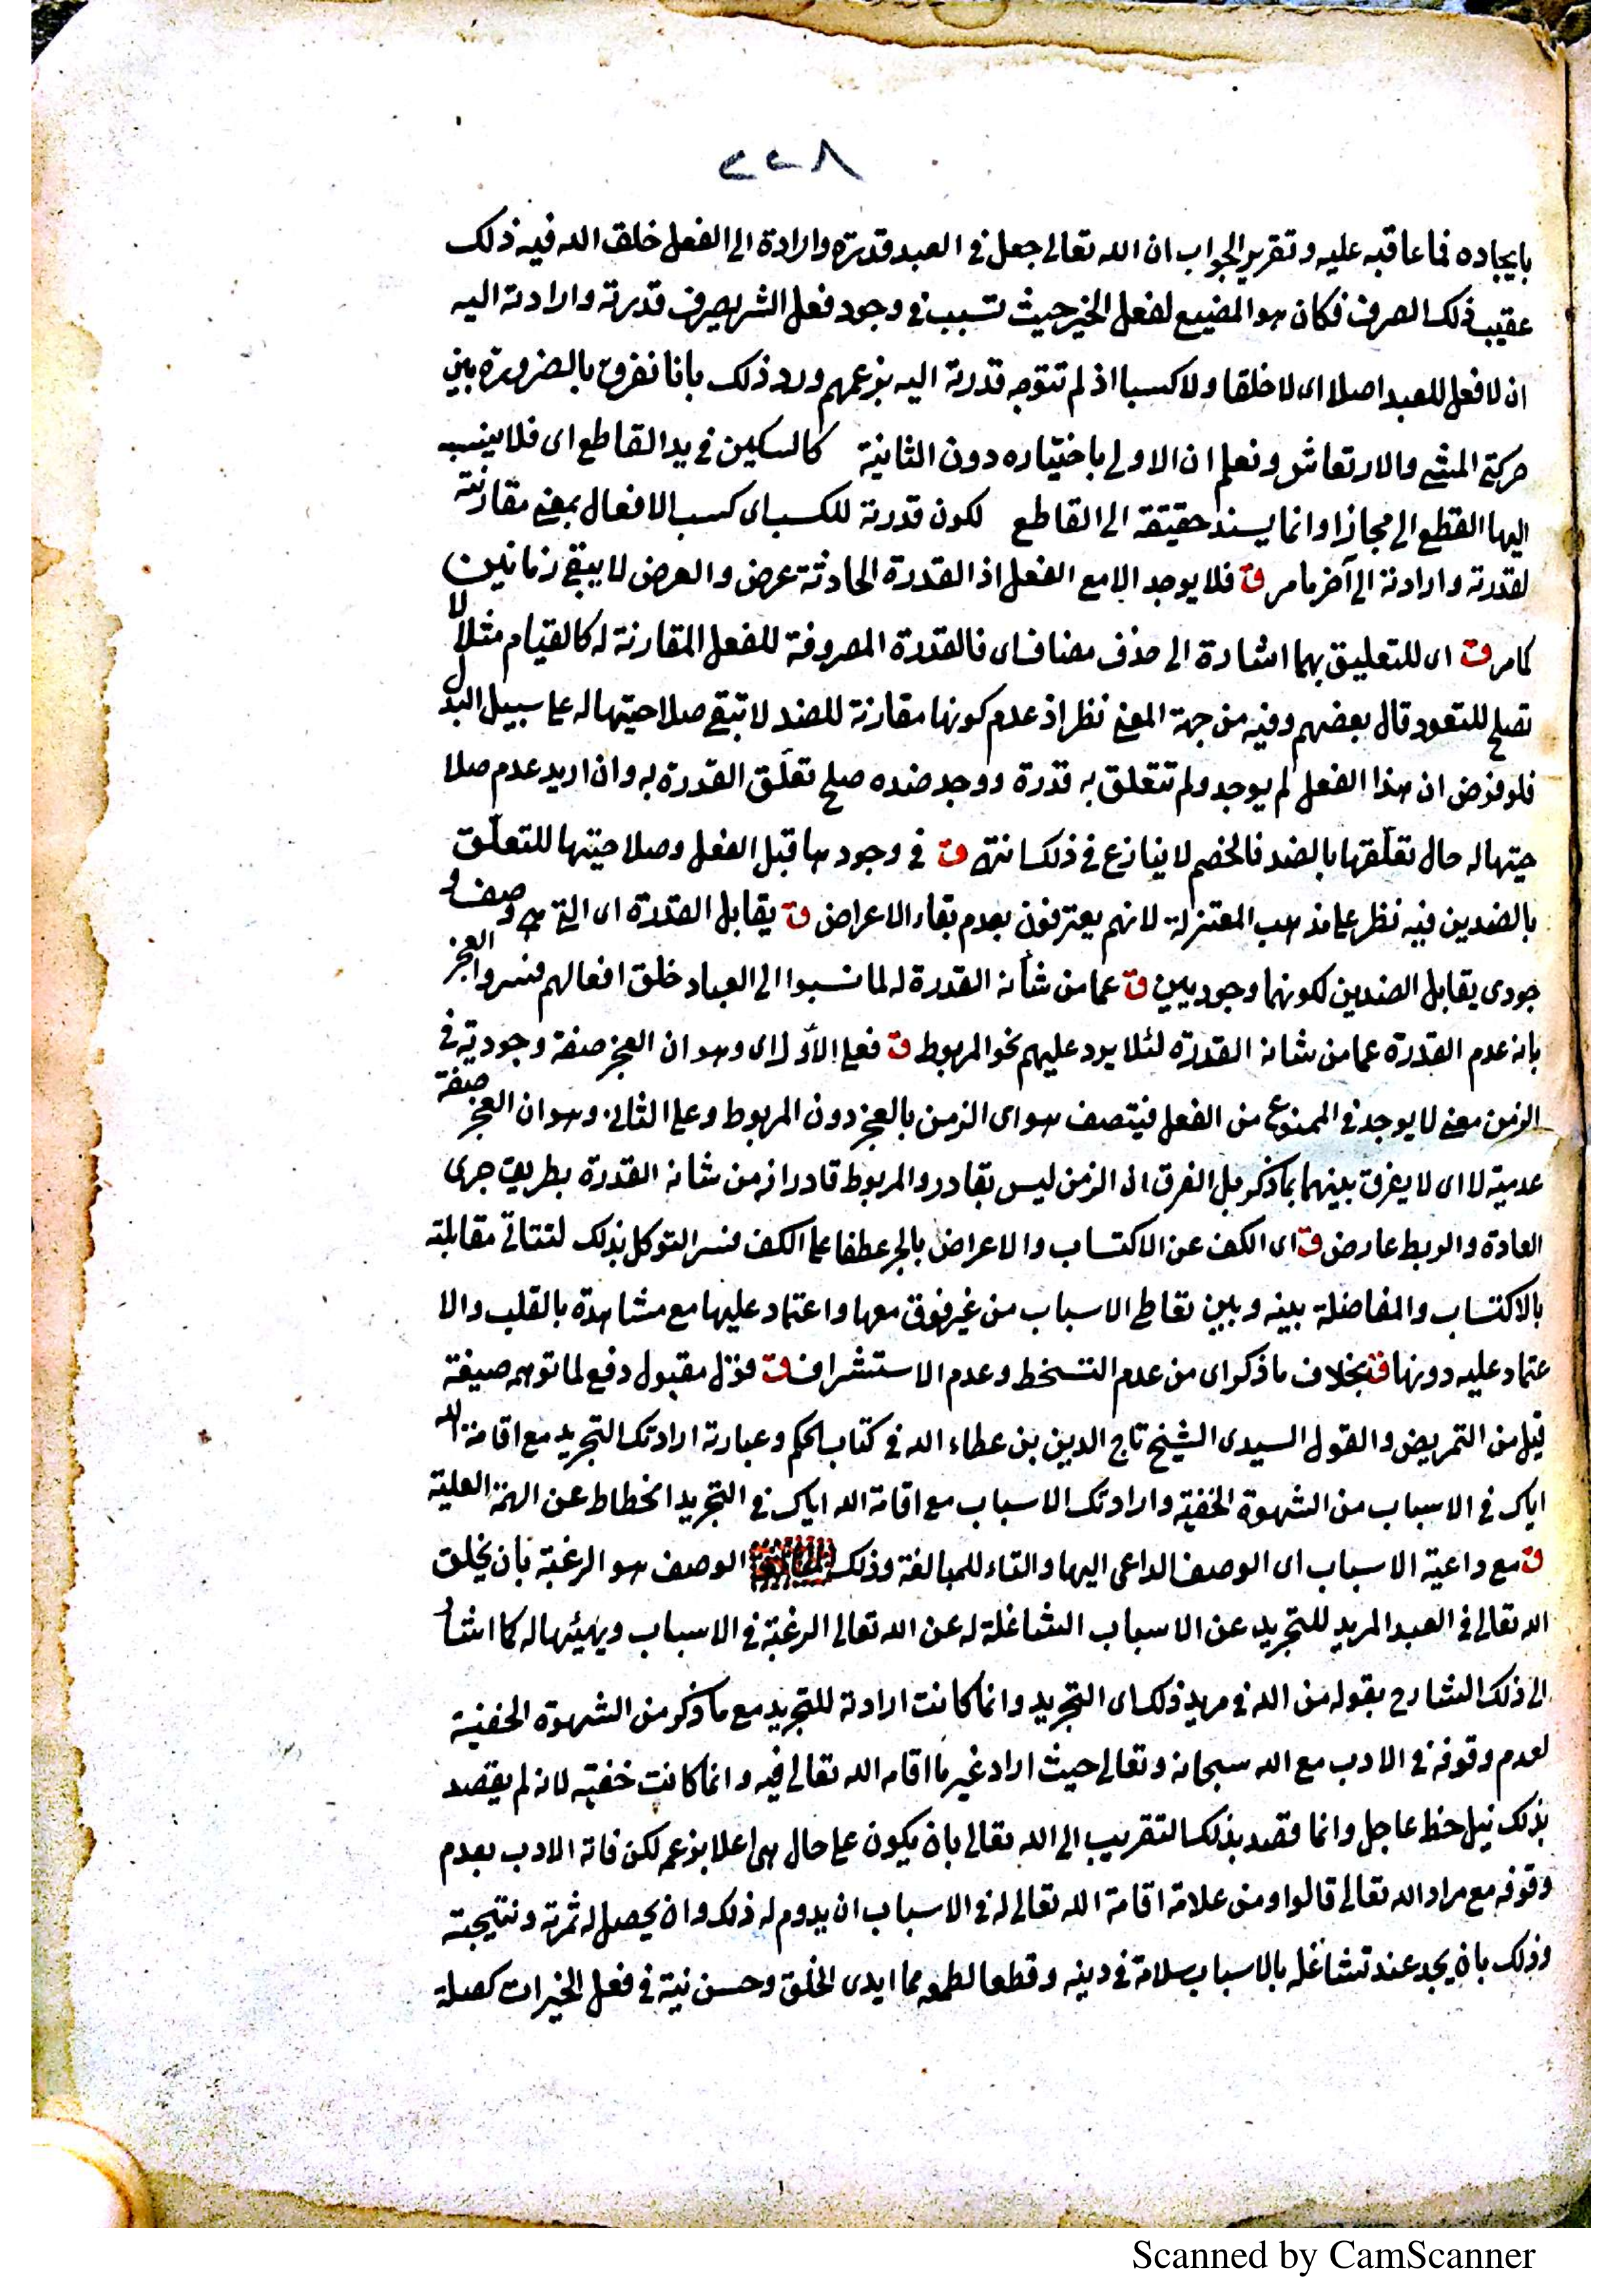 ٢٢٨
بايجاده فما عاقبه عليه وتقرير الجواب ان الله تعالى جعل في العبد قدرة وارادة الى الفعل خلق الله فيه ذلك
عقيب ذلك الصرف فكان هو المضيع لفعل الخير حيث تسبب في وجود فعل الشر بصرف قدرته وارادته اليه
ان لا فعل للعبد اصلا اى لا خلقا ولا كسبا اذ لم تتوجه قدرته اليه بزعمهم ورد ذلك بانا نفرق بالضرورة بين
حركتي المشي والارتعاش ونعلم ان الاولى باختياره دون الثانية كالسكين في يد القاطع اى فلا ينسب
اليها القطع الى مجازا وانما يسند حقيقة الى القاطع لكون قدرته للكسب اى كسب الافعال بمعنى مقارنته
لقدرته وارادته الى آخر ما مر ق فلا يوجد الا مع الفعل اذ القدرة الحادثة عرض والعرض لا يبقى زمانين
كما مر ق اى للتعليق بهما اشارة الى حذف مضاف اى فالقدرة المصروفة للفعل المقارنة له كالقيام مثلا لا
تصلح للتعود قال بعضهم وفيه من جهة المعنى نظر اذ عدم كونها مقارنة للضد لا تبقى صلاحيتها له على سبيل البدل
فلو فرض ان هذا الفعل لم يوجد ولم تتعلق به قدرة ووجد ضده صلح تعلّق القدرة به وان اريد عدم صلا
حيتها له حال تعلّقها بالضد فالخصم لا ينازع في ذلك انتهى ق في وجودها قبل الفعل وصلاحيتها للتعلّق
بالضدين فيه نظر على مذهب المعتزلة لانهم يعترفون بعدم بقاء الاعراض ق يقابل القدرة اى التي هى وصف و
جودى يقابل الضدين لكونهما وجوديين ق عما من شأنه القدرة له لما نسبوا الى العباد خلق افعالهم فسروا العجز
بانه عدم القدرة عما من شانه القدرة لئلا يرد عليهم نحو المربوط ق فعلى الأول اى وهو ان العجز صفة وجودية في
الزمن معنى لا يوجد في الممنوع من الفعل فيتصف هو اى الزمن بالعجز دون المربوط وعلى الثانى وهو ان العجز صفة
عدمية لا اى لا يفرق بينهما بما ذكر بل الفرق ان الزمن ليس بقادر والمربوط قادر انه من شانه القدرة بطريق جرى
العادة والربط عارض ق اى الكف عن الاكتساب والاعراض بالجر عطفا على الكف فسر التوكل بذلك لتتأتى مقابلته
بالاكتساب والمفاضلة بينه وبين تعاطى الاسباب من غير فوق معها واعتماد عليها مع مشاهدة بالقلب والا
عتماد عليه دونها ق بخلاف ما ذكر اى من عدم التسخط وعدم الاستشراف ق قول مقبول دفع لما توهمه صيغة
قيل من التمريض والقول السيدى الشيخ تاج الدين بن عطاء الله في كتاب الحكم وعبارته ارادتك التجريد مع اقامة الله
اياك في الاسباب من الشهوة الخفية وارادتك الاسباب مع اقامة الله اياك في التجريد انحطاط عن الهمة العلية
ق مع داعية الاسباب اى الوصف الداعى اليها والتاء للمبالغة وذلك الوصف هو الرغبة بأن يخلق
الله تعالى في العبد المريد للتجريد عن الاسباب الشاغلة له عن الله تعالى الرغبة في الاسباب ويهيئها له كما اشا
الى ذلك الشارح بقوله من الله في مريد ذلك اى التجريد وانما كانت ارادته للتجريد مع ما ذكر من الشهوة الخفية
لعدم وقوفه في الادب مع الله سبحانه وتعالى حيث اراد غير ما اقامه الله تعالى فيه وانما كانت خفية لانه لم يقصد
بذلك نيل حظ عاجل وانما قصد بذلك التقريب الى الله تعالى بان يكون على حال هى اعلا بزعم لكن فاته الادب بعدم
وقوفه مع مراد الله تعالى قالوا ومن علامة اقامة الله تعالى له في الاسباب ان يدوم له ذلك وان يحصل له ثمرته ونتيجته
وذلك بان يجد عند تشاغله بالاسباب سلامة في دينه وقطعا لطمعه مما ايدى الخلق وحسن نية في فعل الخيرات كصلة
Scanned by CamScanner